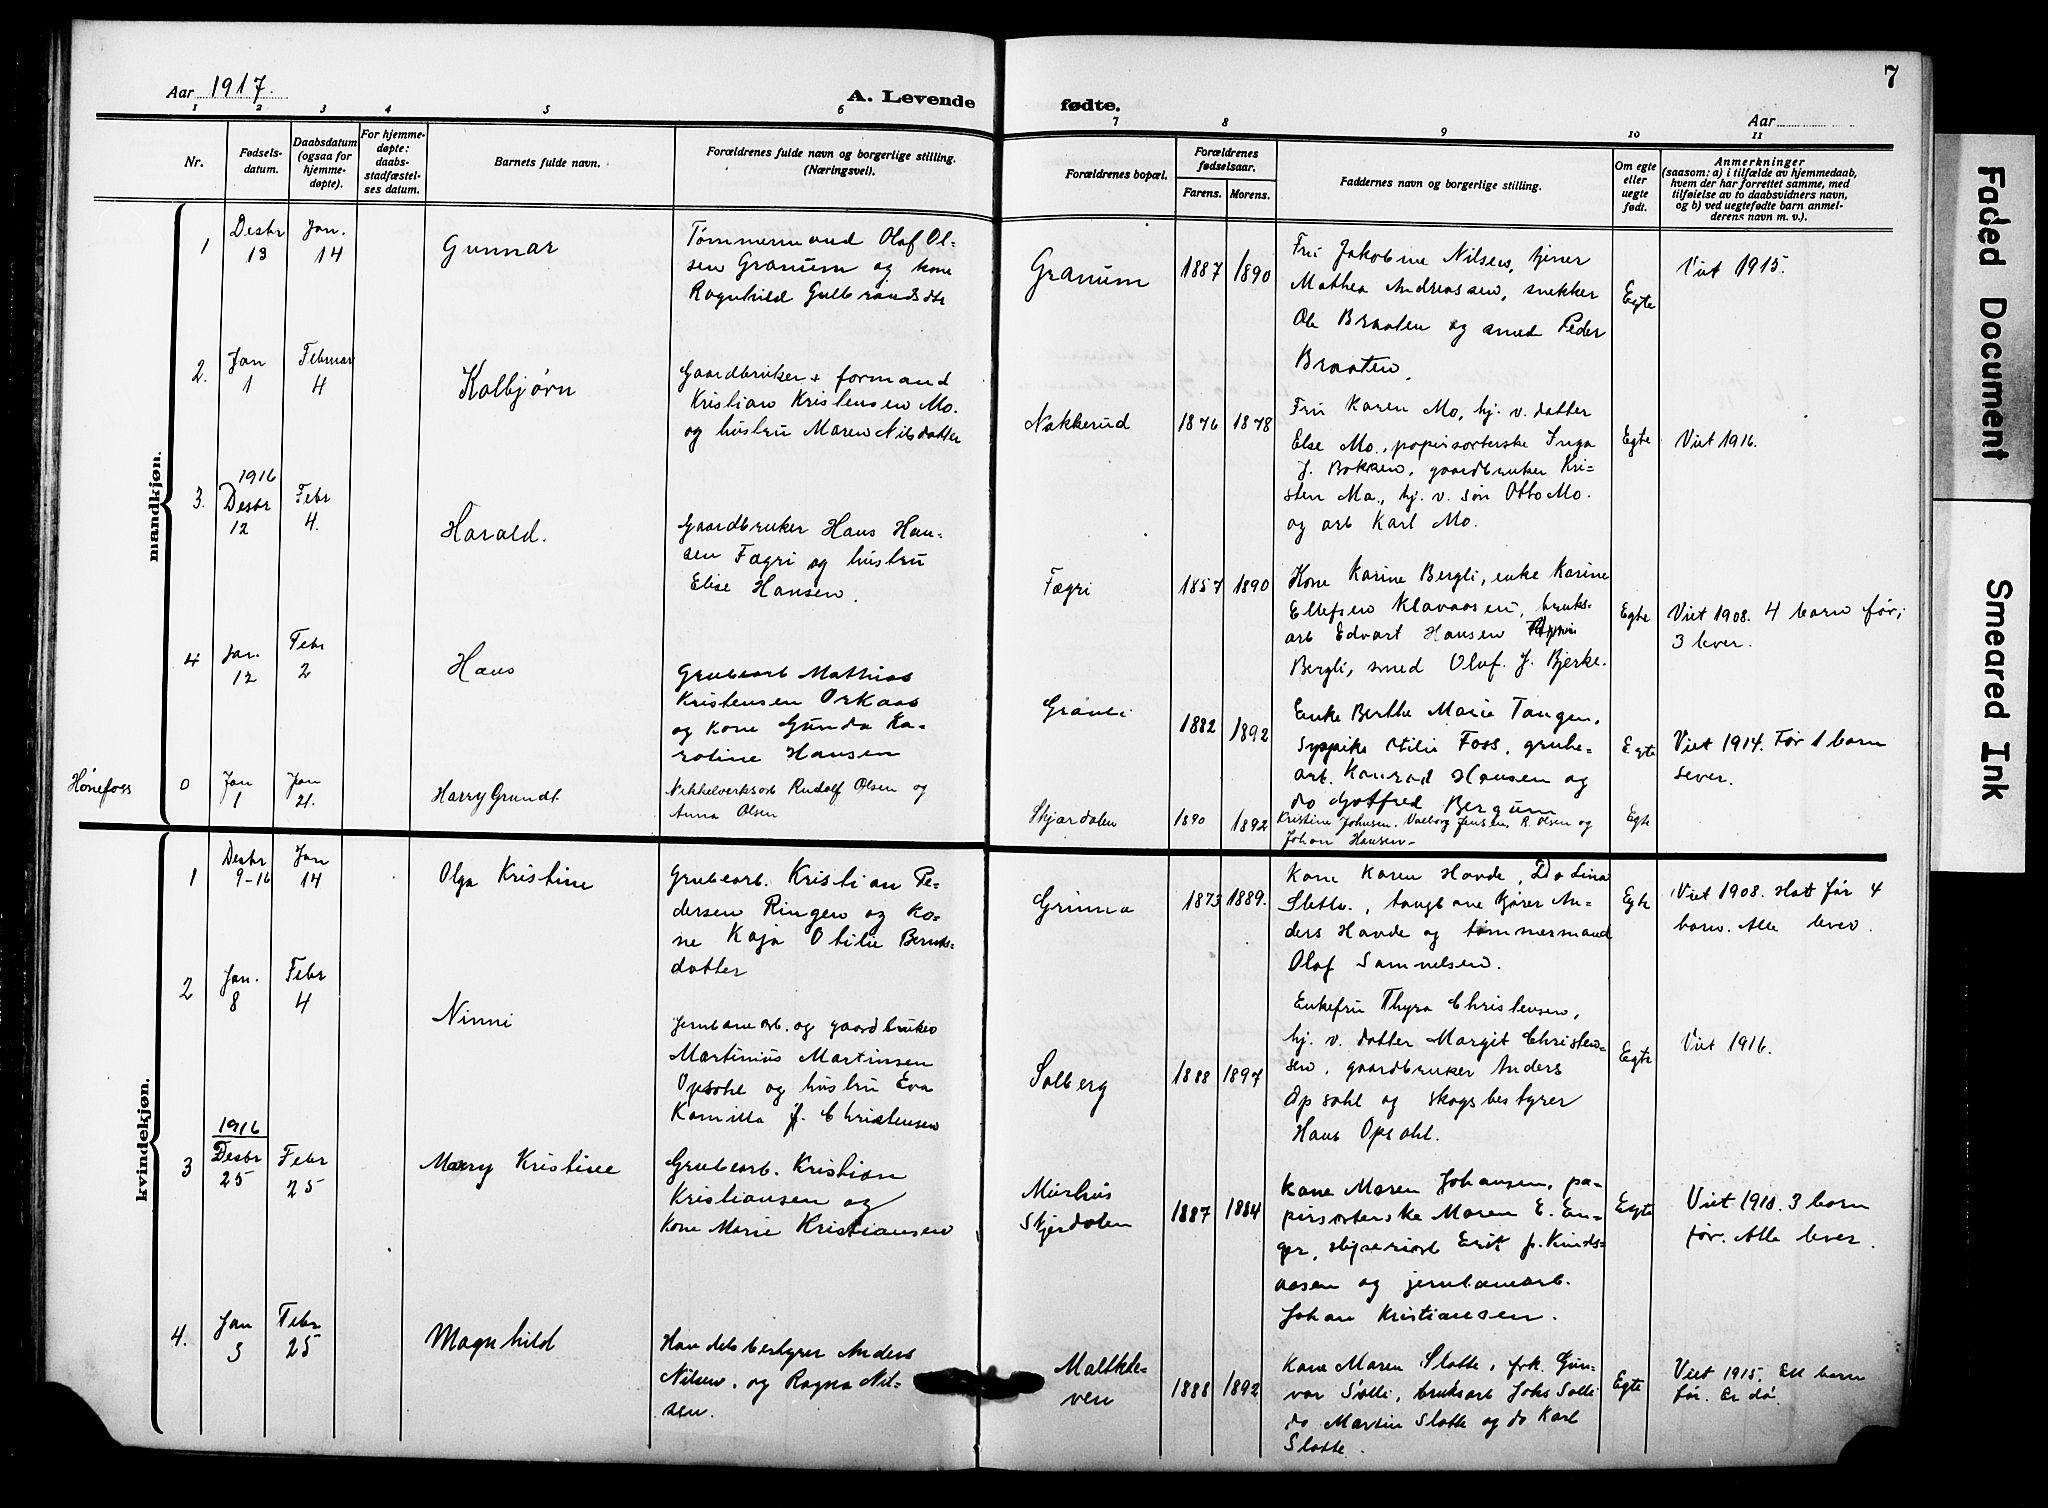 Aar 1917.
A. Levende fødte.
7
Aar
1 2 3 4 5 6 7 8 9 10 11
Nr.
Fødsels-
datum.
Daabsdatum
(ogsaa for
hjemme-
døpte).
For hjemme-
døpte:
daabs-
stadfæstel-
ses datum.
Barnets fulde navn.
Forældrenes fulde navn og borgerlige stilling.
(Næringsvei).
Forældrenes bopæl.
Forældrenes
fødselsaar.
Farens. Morens.
Faddernes navn og borgerlige stilling.
Om egte
eller
uegte
født.
Anmerkninger
(saasom: a) i tilfælde av hjemmedaab,
hvem der har forrettet samme, med
tilføielse av to daabsvidners navn,
og b) ved uegtefødte barn anmel-
derens navn m. v.).
mandkjøn.
1
Desbr
13
Jan.
14
Gunnar
Tømmermand Olaf Ol-
sen Granum og kone
Ragnhild Gulbrandsdtr
Granum
1887
1890
Fru Jakobine Nilsen, tjener
Mathea Andreassen, snekker
Ole Braaten og smed Peder
Braaten.
Egte
Viet 1915.
2.
Jan
1
Februar
4
Kolbjørn
Gaardbruker + formand
Kristian Kristensen Mo.
og hustru Maren Nilsdatter
Nakkerud
1876
1878
Fru Karen Mo, hj. v. datter
Else Mo, papirsorterske Inga
J. Bakken, gaardbruker Kri-
sten Mo., hj. v. søn Otto Mo.
og arb Karl Mo.
Egte
Viet 1916.
3.
1916
Desbr
12
Febr
4.
Harald.
Gaardbruker Hans Han-
sen Fægri og hustru
Elise Hansen.
Fægri
1857
1890
Kone Karine Bergli, enke Karine
Ellefsen Klavaasen, bruks-
arb Edvart Hansen
Bergli, smed Olaf. J. Bjerke.
Egte
Viet 1908. 4 barn før;
3 lever.
4
Jan.
12
Febr
2
Hans
Grubearb Mathias
Kristensen Orkaas
og kone Gunda Ka-
roline Hansen
1882
1892
Enke Berthe Marie Tangen,
Sypike Otilie Foss, grube-
arb. Konrad Hansen og
do Gotfred Bergum
Egte
Viet 1914. Før 1 barn
lever.
Hønefoss
0
Jan
1
Jan
21.
Harry Grundt.
Nikkelverksarb Rudolf Olsen og
Anna Olsen
Skjærdalen
1890
1892
Kristine Johnsen. Valborg Jensen, R. Olsen og
Johan Hansen-
Egte
kvindekjøn.
1
Desbr
9-16
Jan
14
Olga Kristine
Grubearb. Kristian Pe-
dersen Ringen og ko-
ne Kaja Otilie Bernts-
datter
Grinna
1873
1889.
Kone Karen Havde, Do Lina
Slette., taugbane kjører An-
ders Havde og tømmermand
Olaf Samuelsen.
Egte
Viet 1908. Hat før 4
barn. Alle lever.
2
Jan.
8
Febr
4
Ninni
Jernbanearb. og gaardbruker
Martinius Martinsen
Opsahl og hustru Eva
Kamilla J. Christensen
Solberg
1888
1897
Enkefru Thyra Christensen,
hj. v. datter Margit Christen-
sen, gaardbruker Anders
Opsahl og skogsbestyrer
Hans Opsahl.
Egte
Viet 1916.
3
1916
Desbr
25
Febr
25
Marry Kristine
Grubearb. Kristian
Kristiansen og
kone Marie Kristiansen
Murhus
Skjerdalen
1887
1884
Kone Maren Johansen, pa-
pirsorterske Maren E. En-
ger, sliperiarb Erik p. Kinds-
aasen og jernbanearb.
Johan Kristiansen.
Egte
Viet 1910. 3 barn
før. Alle lever.
4.
Jan
3
Febr
25
Magnhild
Handelsbestyrer Anders
Nilsen. og Ragna Nil-
sen.
Maltkle-
ven
1888
1892
Kone Maren Slotte, frk. Gun-
vor Solli, bruksarb Johs Solli
do Martin Slotte og do Karl
Slotte.
Egte
Viet 1915. Ett barn
før. Er dø.
Faded Document
Smeared Ink